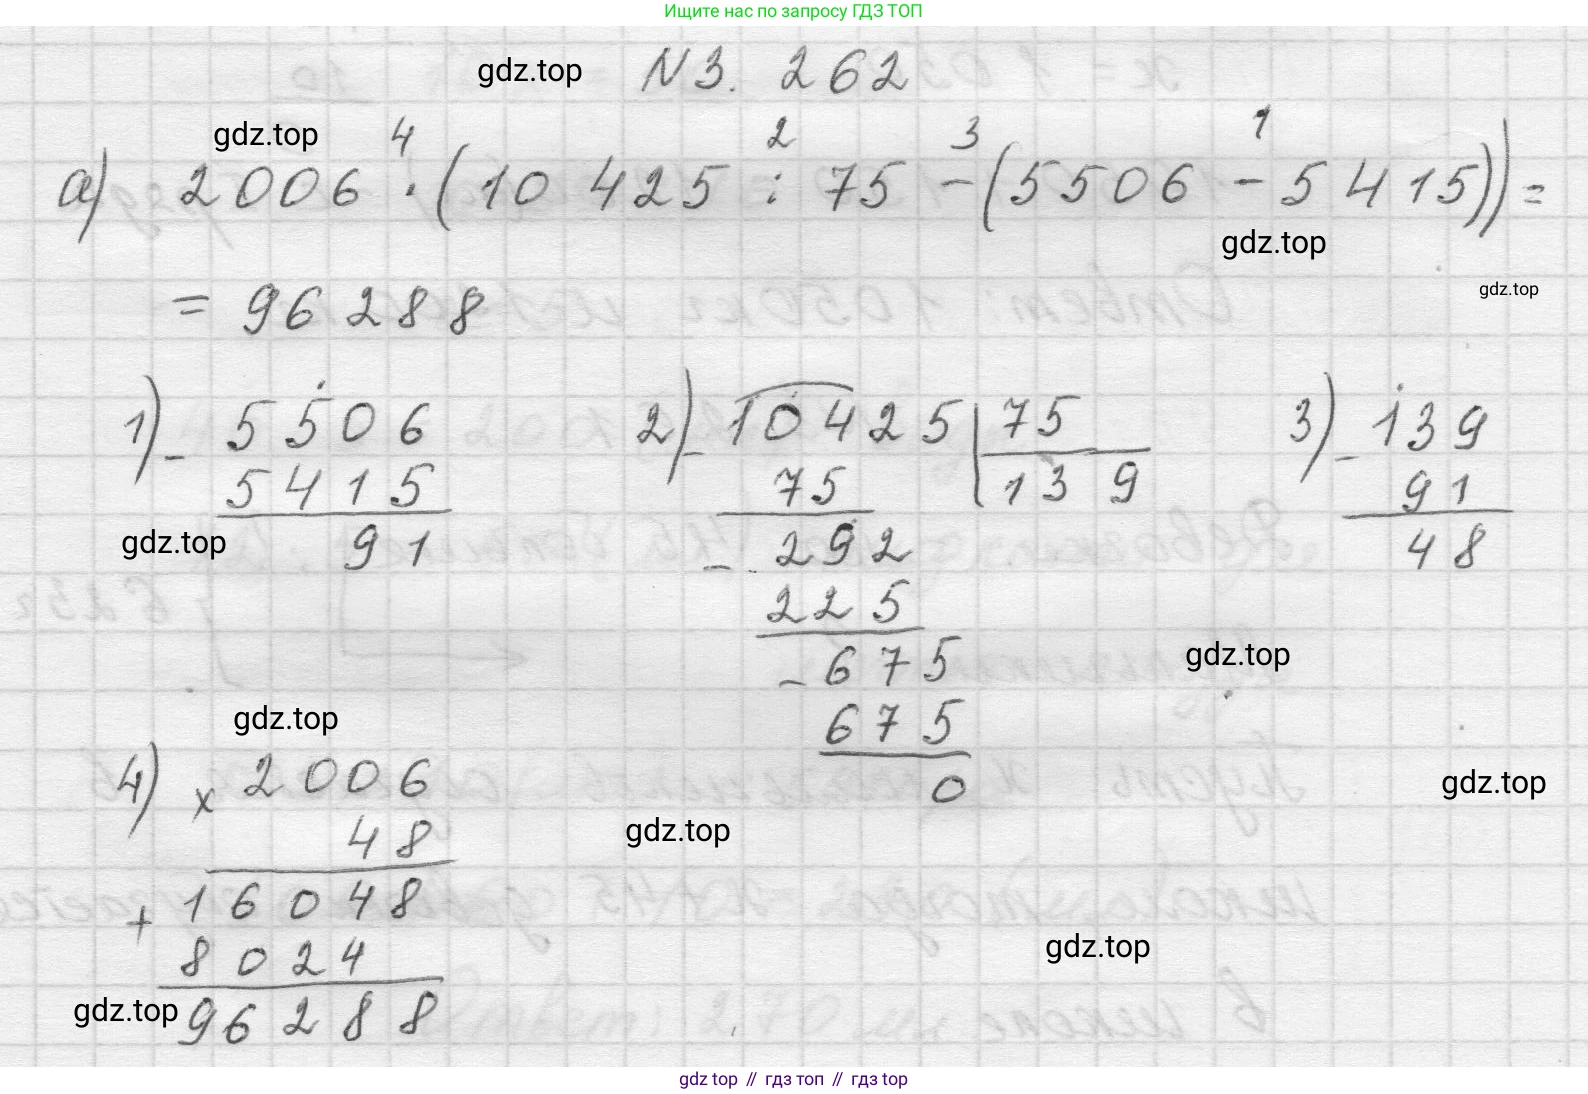 Ищите нас по запросу ГДЗ ТОП
gdz.top N 3. 262
gdz.top 4 2 3 1
а) 2006 · (10 425 : 75 - (5506 - 5415)) =
gdz.top
gdz.top
= 96 288
1) - 5506
5415
91
gdz.top
2) - 10425 | 75
75 139
- 292
225
- 675
675
0
3) - 139
91
48
gdz.top
gdz.top
4) x 2006
48
+ 16048
8024
96288
gdz.top
gdz.top
gdz.top
gdz.top
gdz top // гдз топ // гдз top